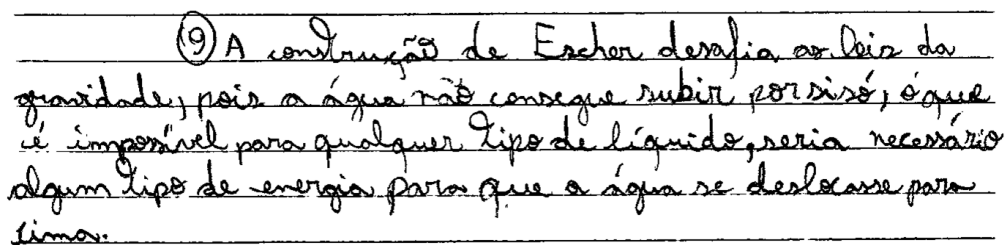 9 A construção de Escher desafia as leis da
gravidade, pois a água não consegue subir por si só, o que
é impossível para qualquer tipo de líquido, seria necessário
algum tipo de energia para que a água se deslocasse para
cima.